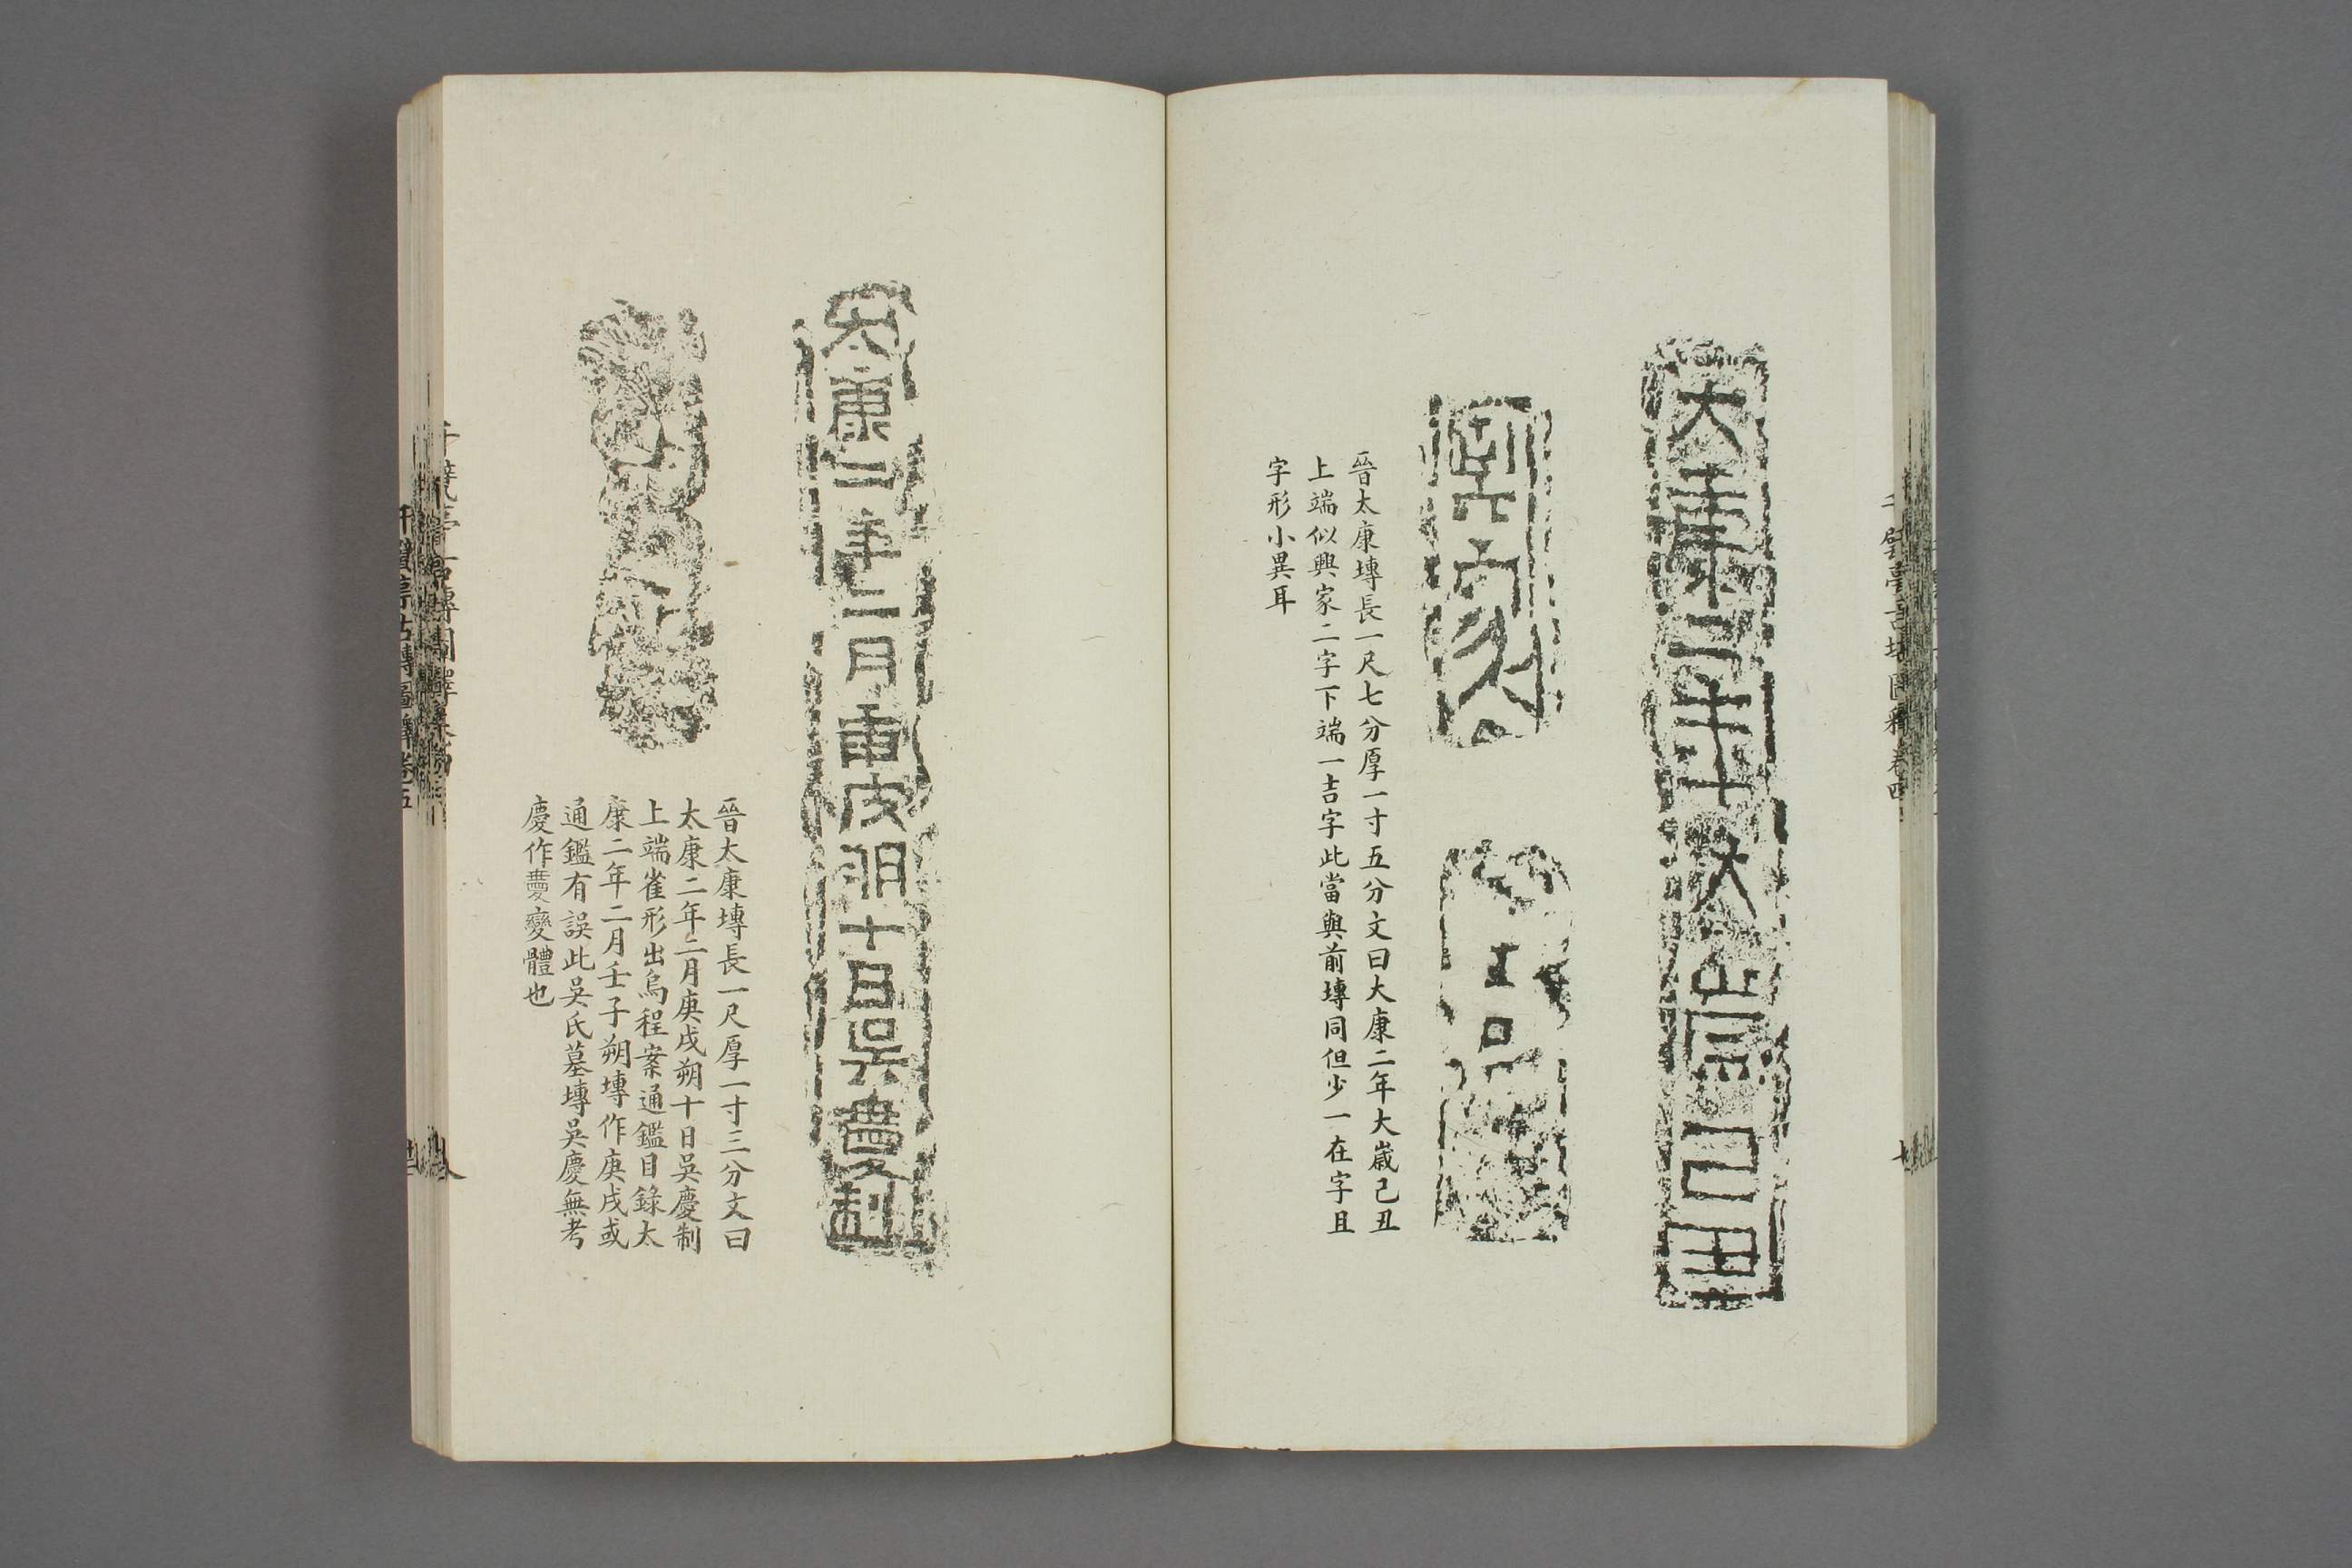 大康二年大歲己丑
吉
晉太康塼長一尺七分厚一寸五分文曰大康二年大歲己丑
上端似興家二字下端一吉字此當與前塼同但少一在字且
字形小異耳
太康二年二月庚戌朔十日吳慶制
晉太康塼長一尺厚一寸三分文曰
太康二年二月庚戌朔十日吳慶制
上端雀形出烏程案通鑑目錄太
康二年二月壬子朔塼作庚戌或
通鑑有誤此吳氏墓塼吳慶無考
慶作𢝬變體也